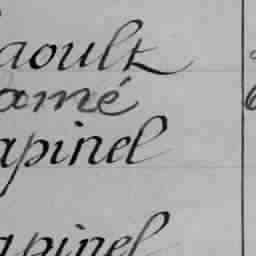 aoult
amé
apinel
apinel